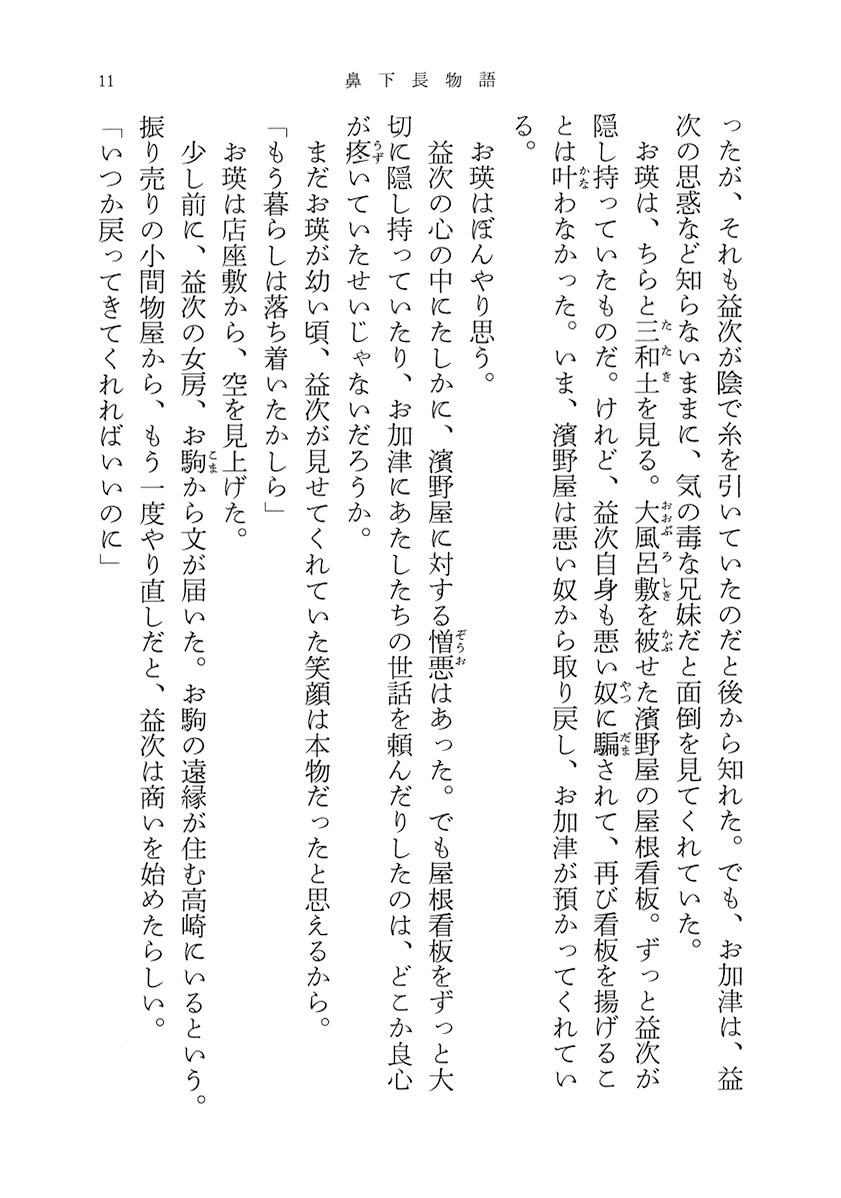 11
鼻下長物語
ったが、それも益次が陰で糸を引いていたのだと後から知れた。でも、お加津は、益
次の思惑など知らないままに、気の毒な兄妹だと面倒を見てくれていた。
お瑛は、ちらと三和土を見る。大風呂敷を被せた濱野屋の屋根看板。ずっと益次が
隠し持っていたものだ。けれど、益次自身も悪い奴に騙されて、再び看板を揚げるこ
とは叶わなかった。いま、濱野屋は悪い奴から取り戻し、お加津が預かってくれてい
る。
お瑛はぼんやり思う。
益次の心の中にたしかに、濱野屋に対する憎悪はあった。でも屋根看板をずっと大
切に隠し持っていたり、お加津にあたしたちの世話を頼んだりしたのは、どこか良心
が疼いていたせいじゃないだろうか。
まだお瑛が幼い頃、益次が見せてくれていた笑顔は本物だったと思えるから。
「もう暮らしは落ち着いたかしら」
お瑛は店座敷から、空を見上げた。
少し前に、益次の女房、お駒から文が届いた。お駒の遠縁が住む高崎にいるという。
振り売りの小間物屋から、もう一度やり直しだと、益次は商いを始めたらしい。
「いつか戻ってきてくれればいいのに」